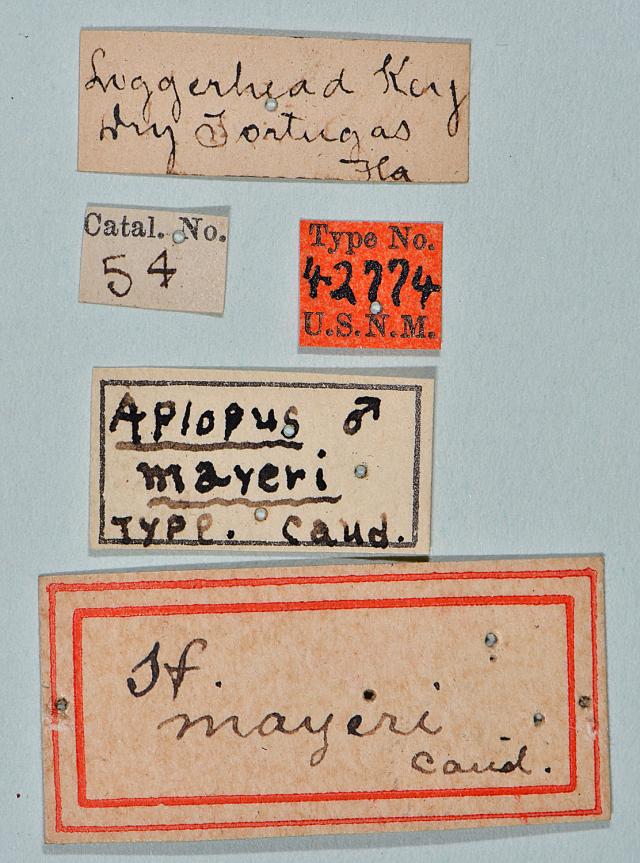 Loggerhead Key
Dry Tortugas
Fla
Catal. No.
54
Type No.
42774
U.S.N.M.
Aplopus ♂
mayeri
Type. Caud.
H.
mayeri
Caud.